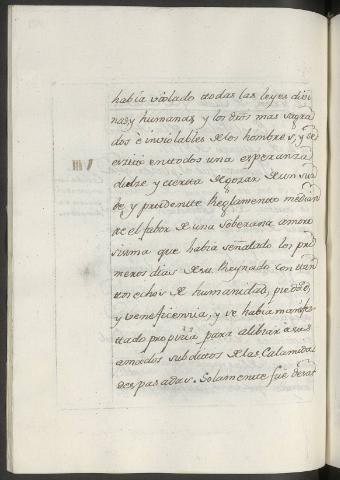 havia violado todas las leyes divi
nas, y humanas y los dros mas sagra
dos è inviolables de los hombres, y se
excitò en todos una esperanza
dulze y cierta de gozar de un sua
ve y prudente Reglamento median
te el fabor de una Soberana amoro
sisima que havia señalado los pri
meros dias de su Reynado con tan
tos echos de humanidad, piedad,
y veneficencia, y se havia manifes
tado propicia para alibiar à sus
amados subditos de las Calamida
des pasadas. Solamente fue